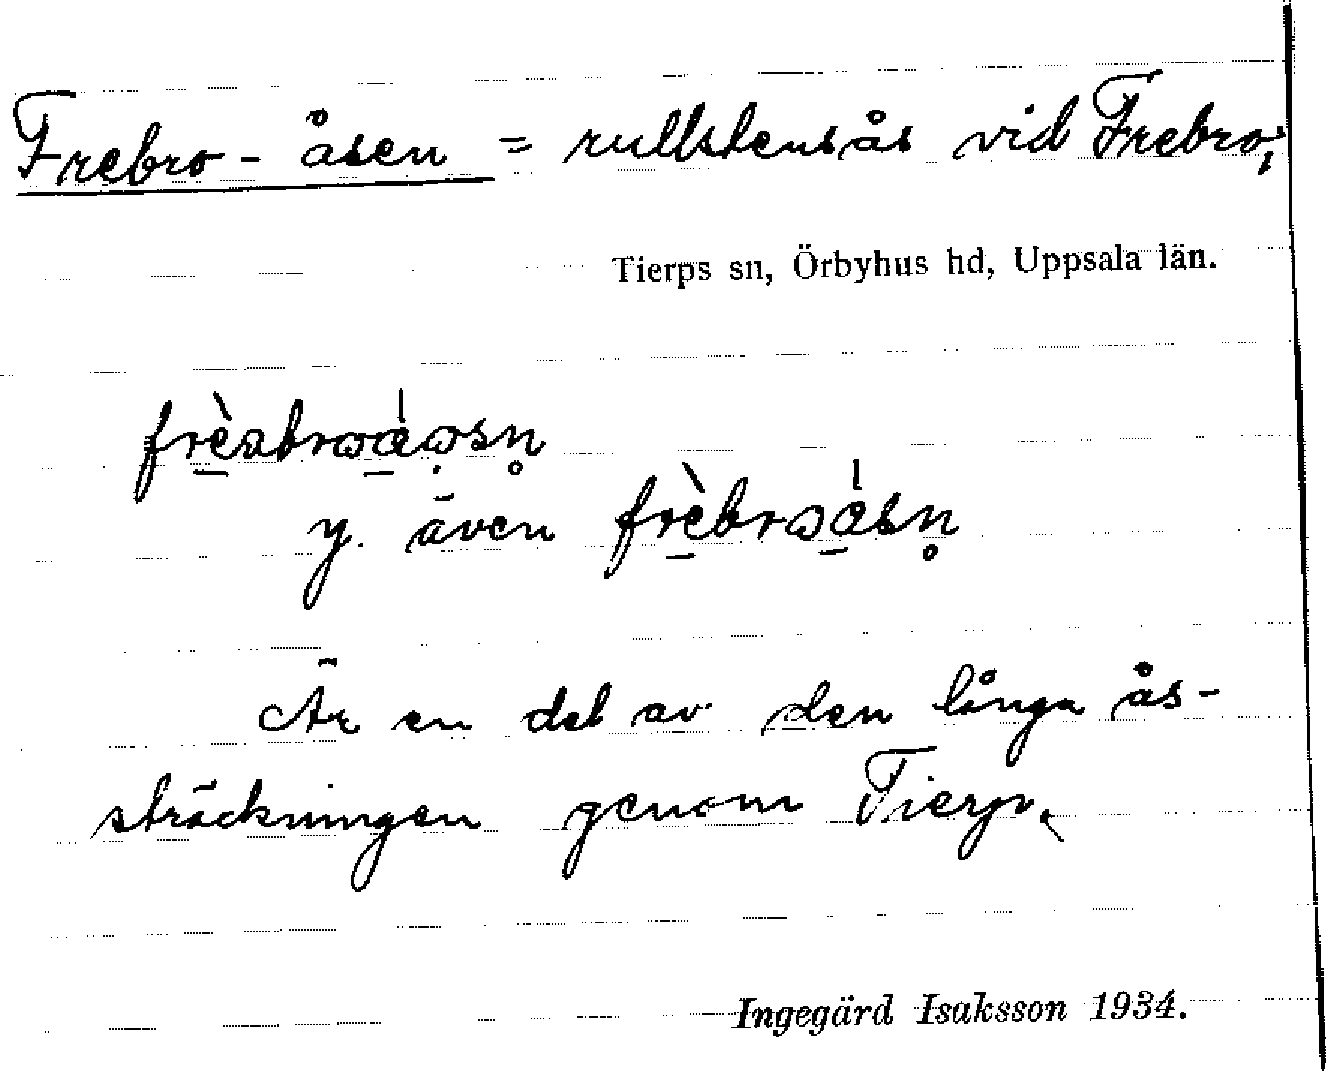 Frebro-åsen = rullstensås vid Frebro,
Tierps sn, Örbyhus hd, Uppsala län.
y. även
Är en del av den långa ås-
sträckningen genom Tierp.
Ingegärd Isaksson 1934.